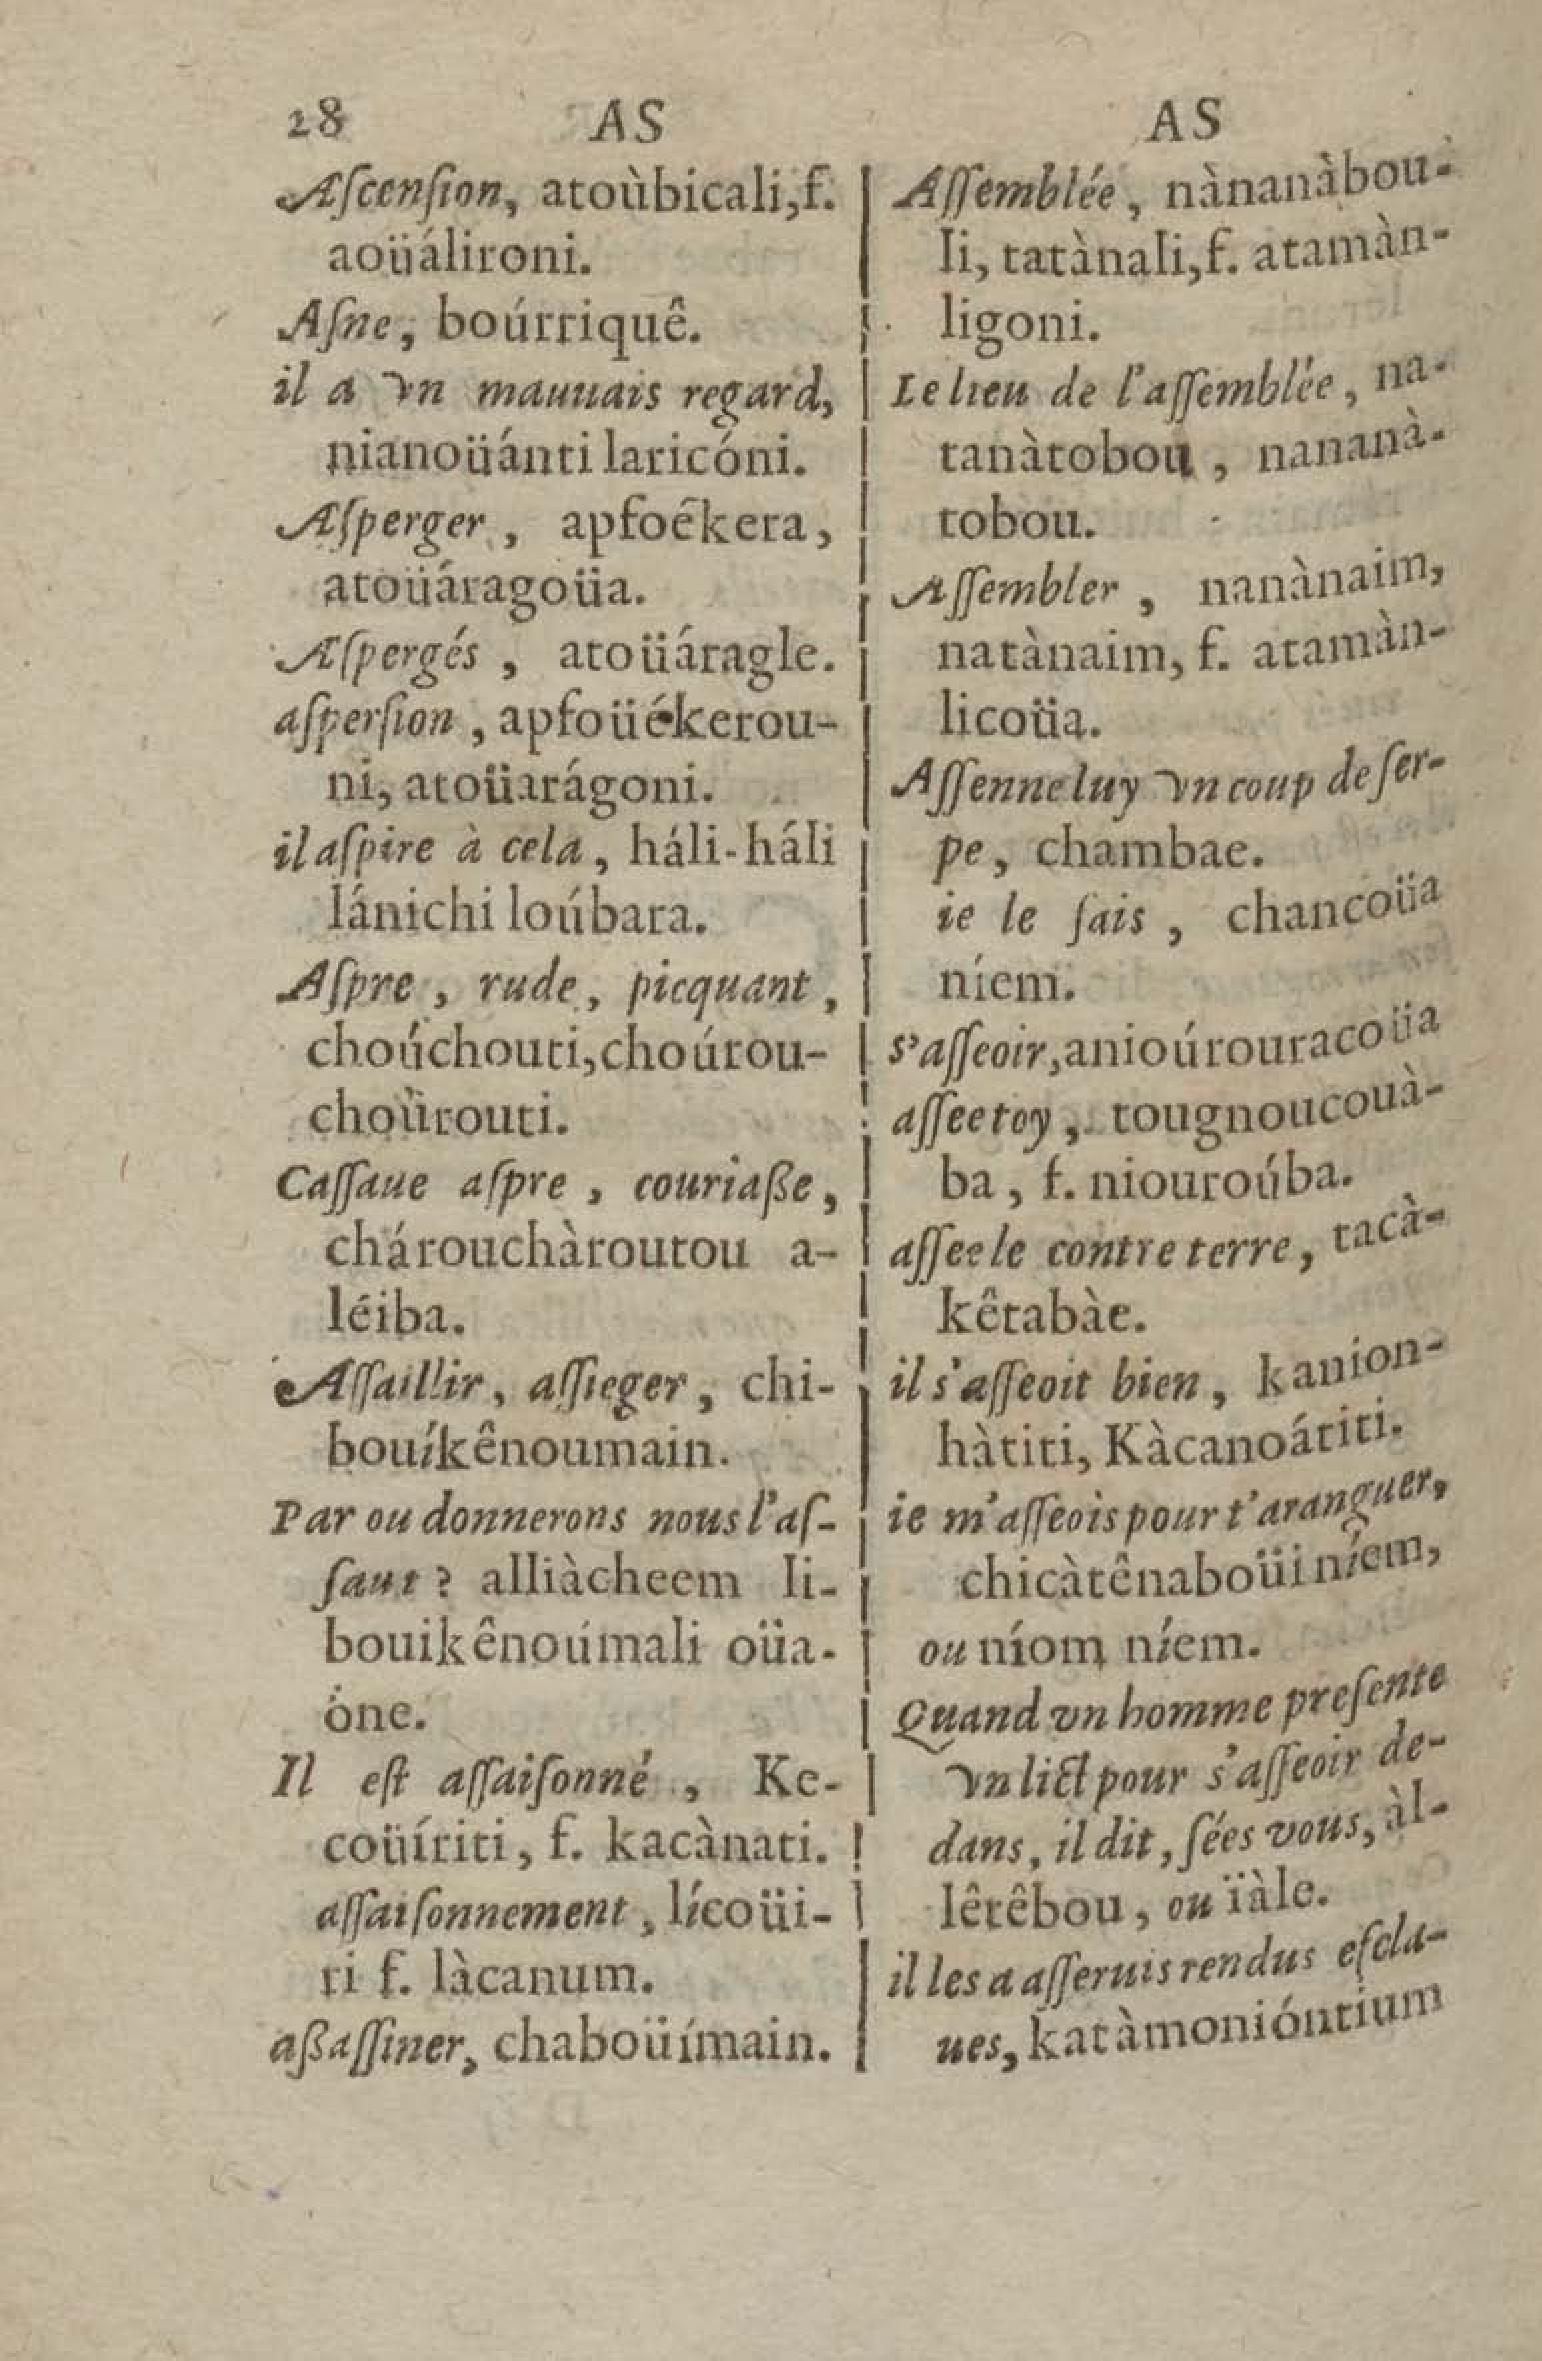 28 AS
Aſcenſion, atoùbicali, f.
aoüálironi.
Aſne, boúrriquê.
il a vn mauuais regard,
nianoüánti laricóni.
Aſperger, apfoêkera,
atoüáragoüa.
Aſpergés, atoüáragle.
aſperſion, apfoüékerou-
ni, atoüarágoni.
il aſpire à cela, háli-háli
lánichi loúbara.
Aſpre, rude, picquant,
choúchouti, choúrou-
choùrouti.
Caſſaue aſpre, couriaße,
chárouchàroutou a-
léiba.
Aſſaillir, aſſieger, chi-
bouíkênoumain.
Par ou donnerons nous l'aſ-
ſaut? alliàcheem li-
bouikênoúmali oüa-
óne.
Il eſt aſſaiſonné, Ke-
coüíriti, f. kacànati.
aſſaiſonnement, lícoüi-
ri f. làcanum.
aßaſſiner, chaboüímain.
AS
Aſſemblée, nànanàbou-
li, tatànali, f. atamàn-
ligoni.
Le lieu de l'aſſemblée, na-
tanàtobou, nananà-
tobou.
Aſſembler, nanànaim,
natànaim, f. atamàn-
licoüa.
Aſſenne luy vn coup de ſer-
pe, chambae.
ie le fais, chancoüa
níem.
s'aſſeoir, anioúrouracoüa
aſſee toy, tougnoucouà-
ba, f. niouroúba.
aſſee le contre terre, tacà-
kêtabàe.
il s'aſſeoit bien, kanion-
hàtiti, Kàcanoátiti.
ie m'aſſeois pour t'aranguer,
chicàtênaboüi níem,
ou níom níem.
Quand vn homme preſente
vn lict pour s'aſſeoir de-
dans, il dit, ſées vous, àl-
lêtêbou, ou ïàle.
il les a aſſeruis rendus eſcla-
ues, katàmonióntium